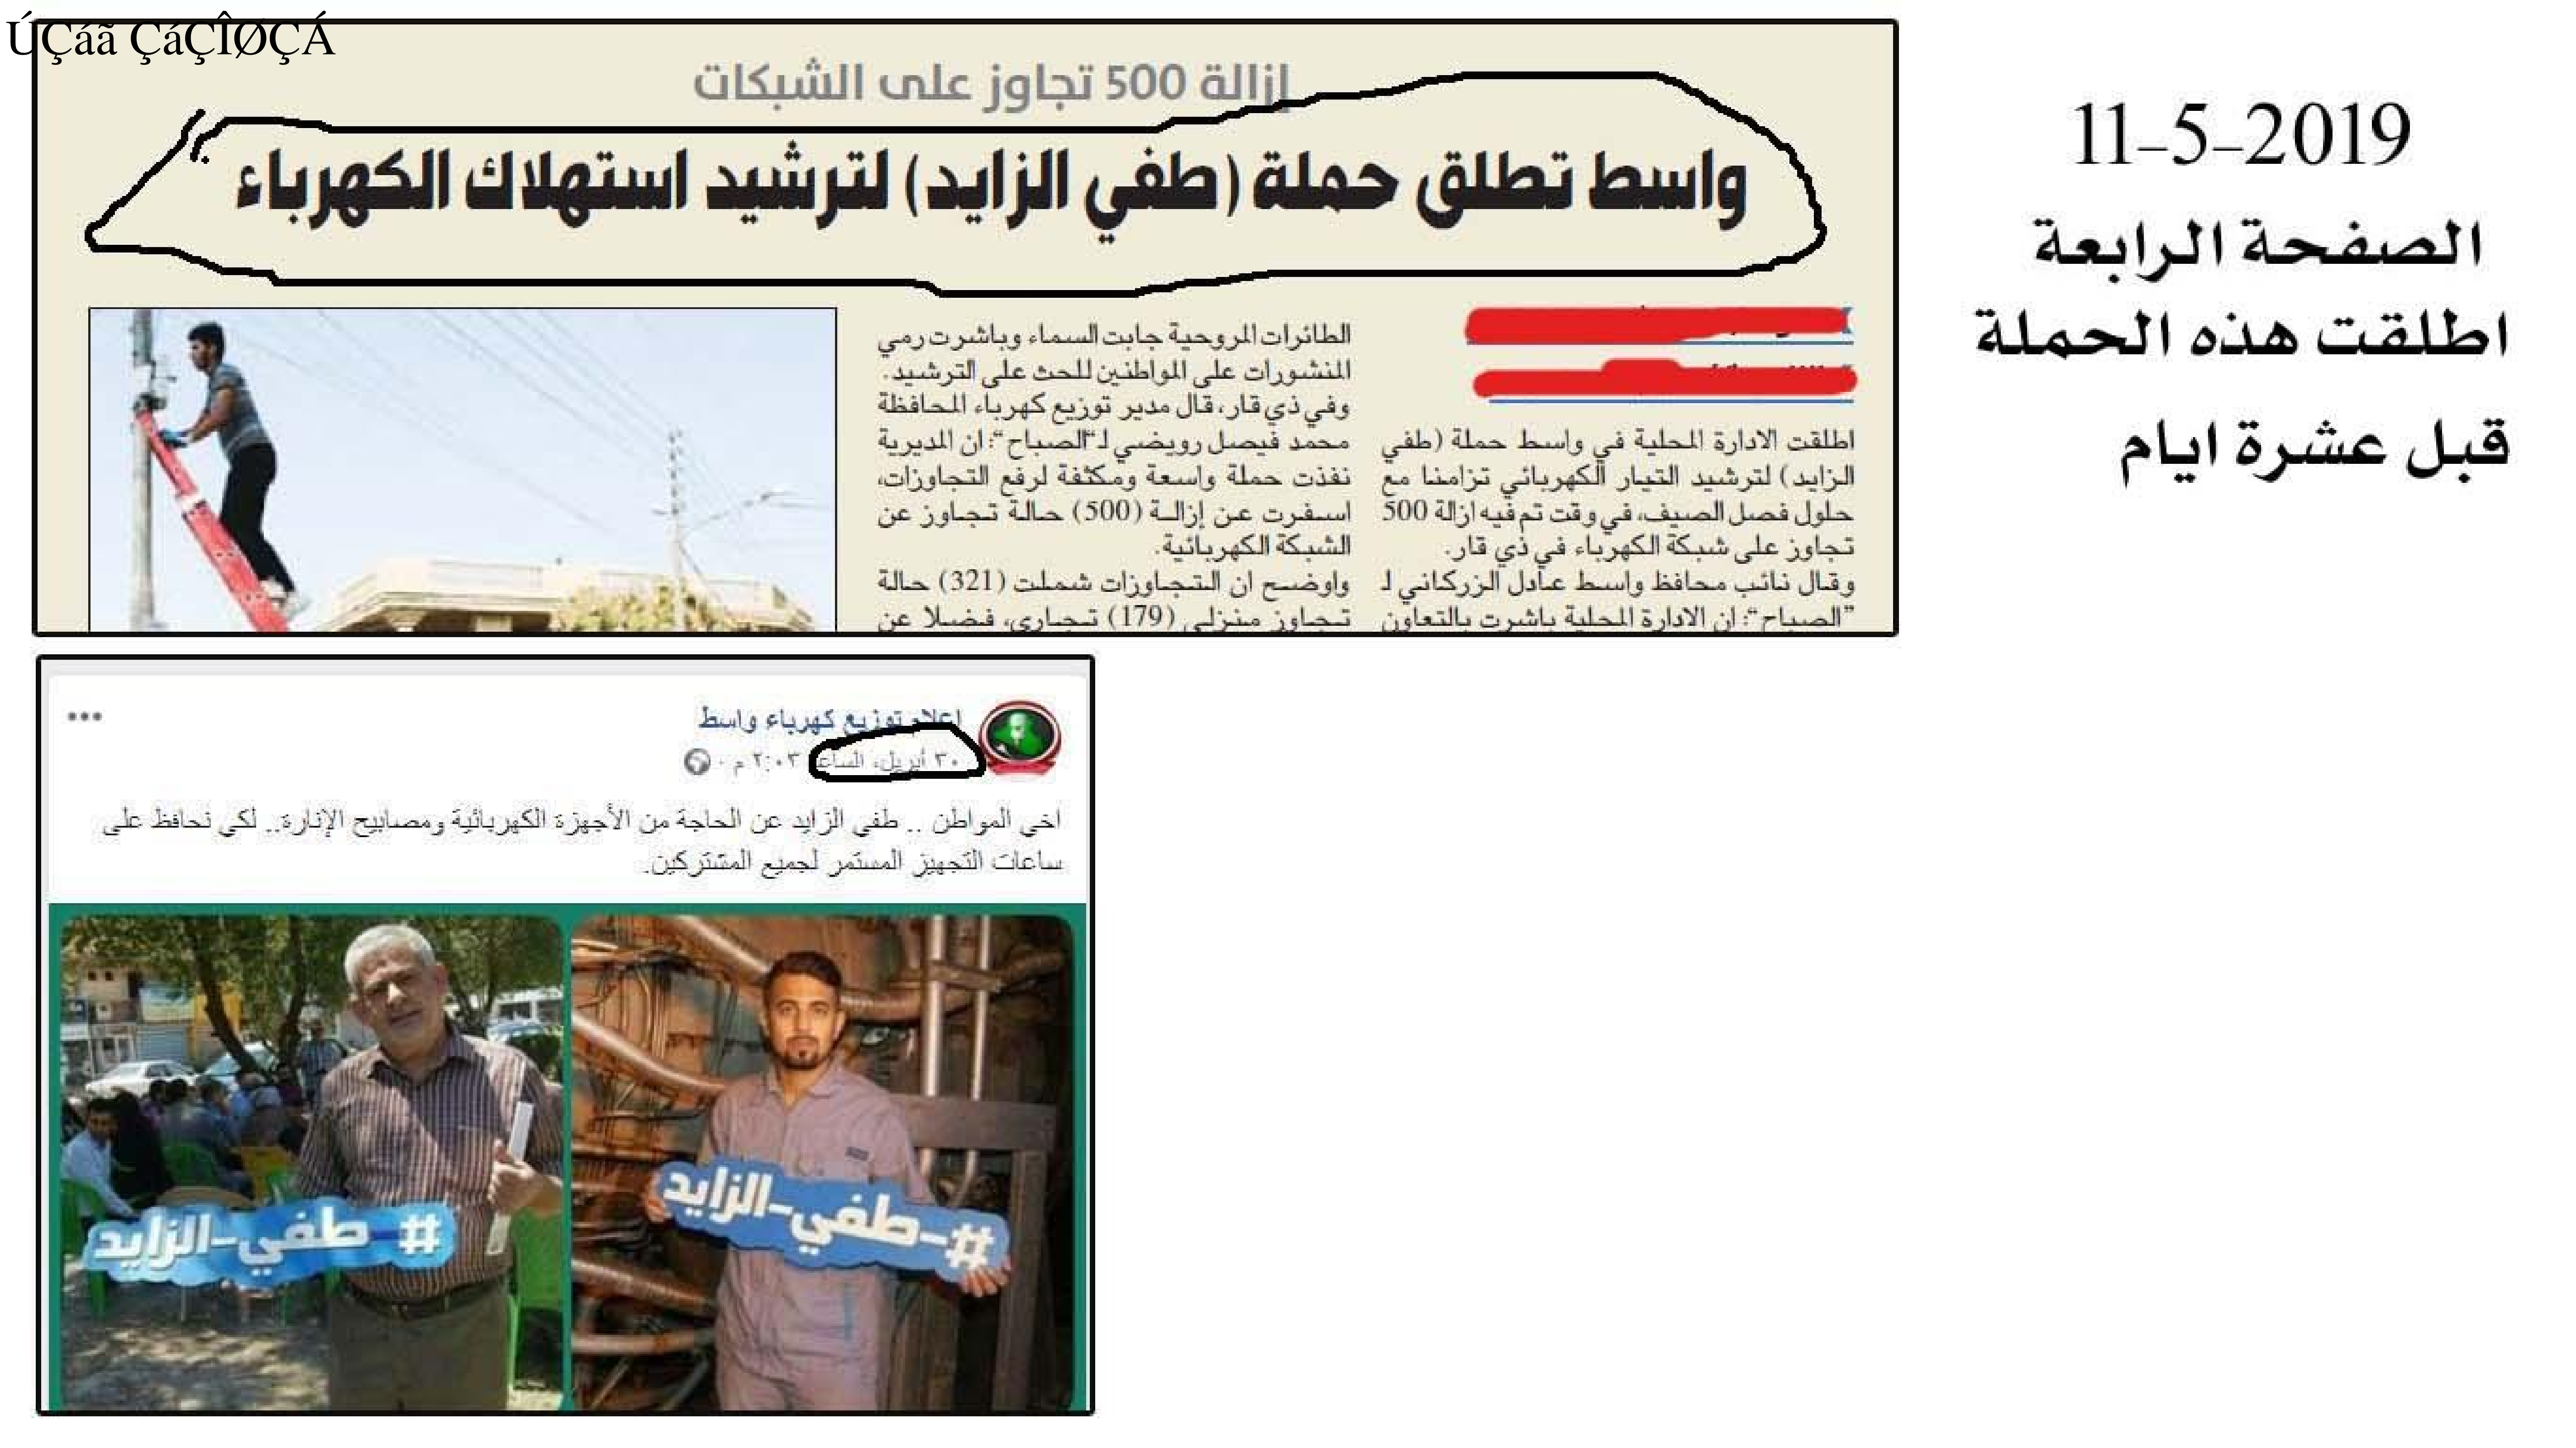 ÚÇáã ÇáÇÎØÇÁ
إزالة 500 تجاوز على الشبكات
واسط تطلق حملة (طفي الزايد) لترشيد استهلاك الكهرباء
اطلقت الادارة المحلية في واسط حملة (طفي
الزايد) لترشيد التيار الكهربائي تزامنا مع
حلول فصل الصيف، في وقت تم فيه ازالة 500
تجاوز على شبكة الكهرباء في ذي قار.
وقال نائب محافظ واسط عادل الزركاني لـ
”الصباح“: ان الادارة المحلية باشرت بالتعاون
الطائرات المروحية جابت السماء وباشرت رمي
المنشورات على المواطنين للحث على الترشيد.
وفي ذي قار، قال مدير توزيع كهرباء المحافظة
محمد فيصل رويضي لـ”الصباح“: ان المديرية
نفذت حملة واسعة ومكثفة لرفع التجاوزات،
اسفرت عن إزالة (500) حالة تجاوز عن
الشبكة الكهربائية.
واوضح ان التجاوزات شملت (321) حالة
تجاوز منزلي (179) تجاري، فضلا عن
11-5-2019
الصفحة الرابعة
اطلقت هذه الحملة
قبل عشرة ايام
إعلام توزيع كهرباء واسط
٣٠ أبريل، الساعة ٢:٠٣ م ·
اخي المواطن .. طفي الزايد عن الحاجة من الأجهزة الكهربائية ومصابيح الإنارة.. لكي نحافظ على
ساعات التجهيز المستمر لجميع المشتركين.
#-طفي-الزايد
#-طفي-الزايد